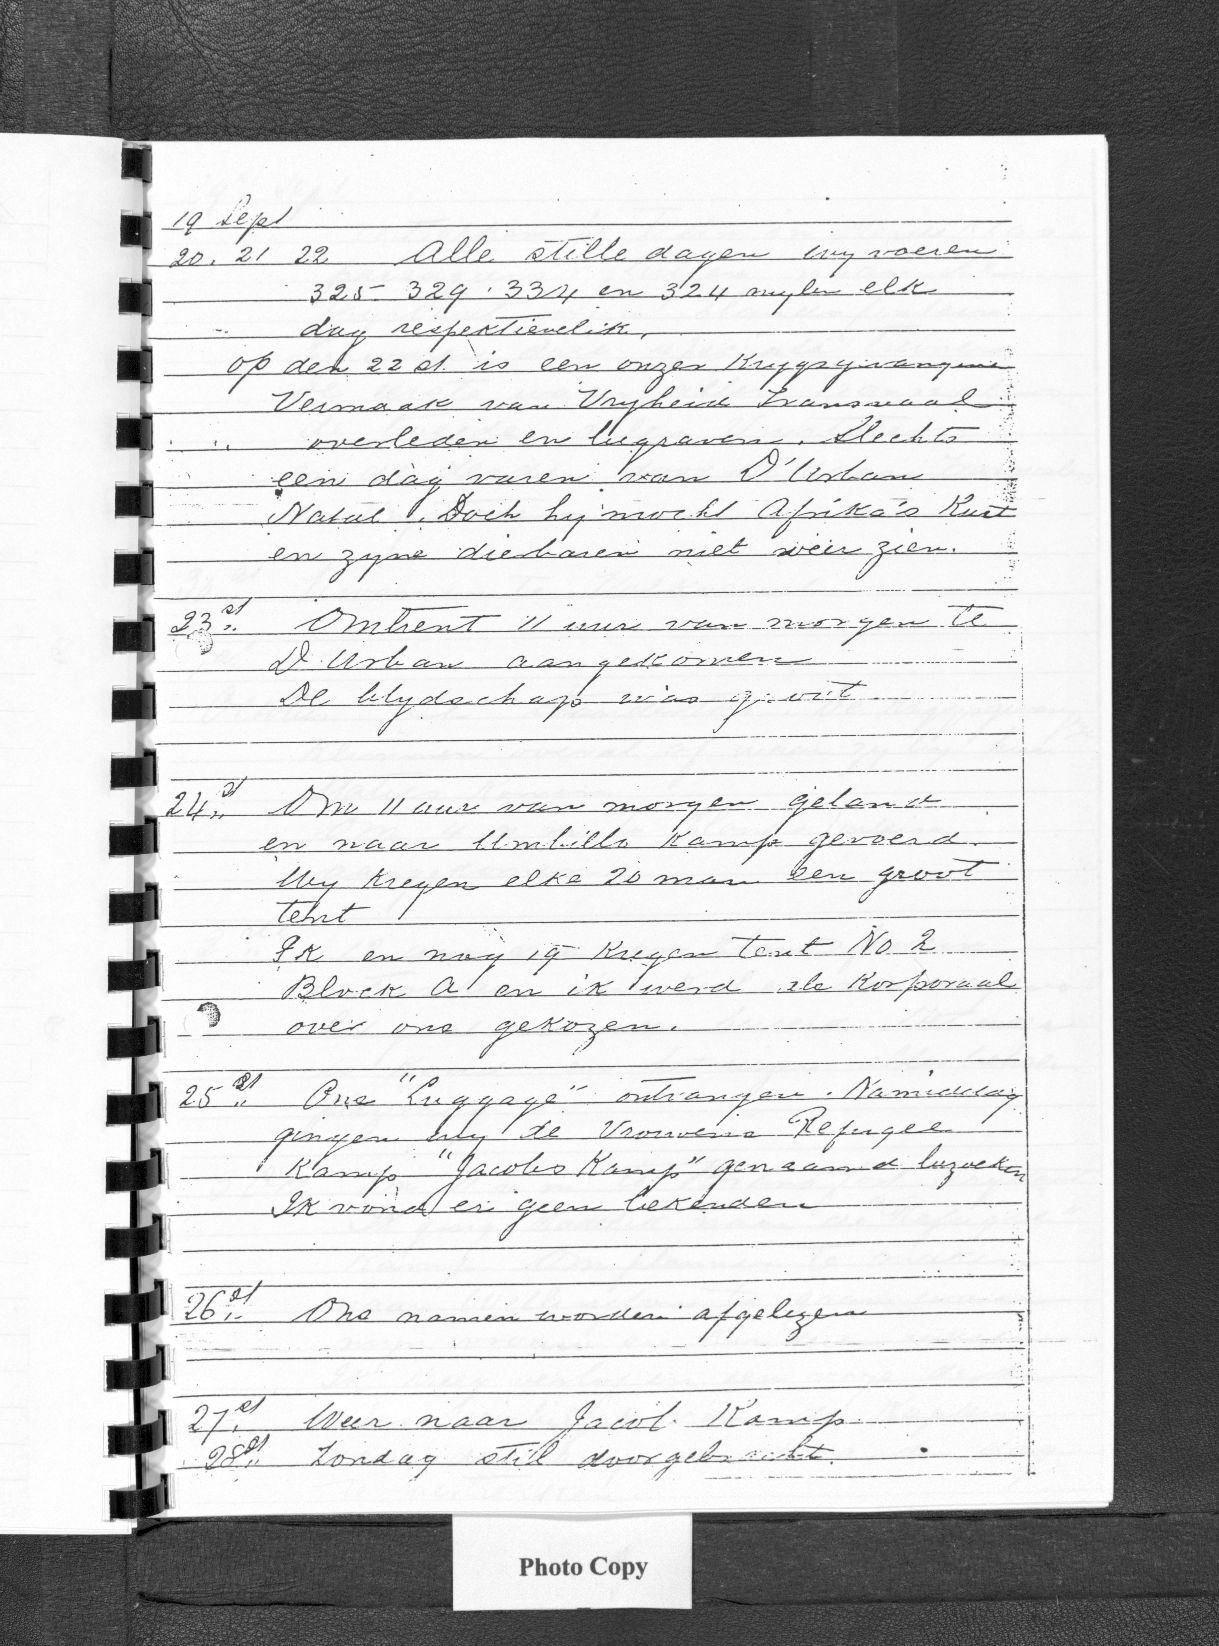 19 Sept
20. 21 22 Alle stille dagen wy voeren
325 329 . 334 en 324 mylen elk
dag respektievelik.
op den 22st is een onzer Krygsgevangene
Vermaak van Vryheid Transvaal
overleden en begraven. Slechts
een dag varen van D'Urban
Natal. Doch hy mocht Afrika's Kust
en zyne dierbaren niet weer zien.
23st Omtrent 11 uur van morgen te
D'Urban aangekomen
De blydschap was groot
24st Om 11 uur van morgen geland
en naar Umbillo Kamp gevoerd.
Wy kregen elke 20 man een groot
tent
Ik en nog 19 kregen tent No 2
Block A en ik werd als Korporaal
over ons gekozen.
25st Ons "Luggage" ontvangen. Namiddag
gingen wy de Vrouwens Refugee
Kamp "Jacobs Kamp" genaamd bezoeken
Ik vond er geen bekenden
26st Ons namen worden afgelezen
27st Weer naar Jacob. Kamp
28st Zondag stil doorgebracht.
Photo Copy